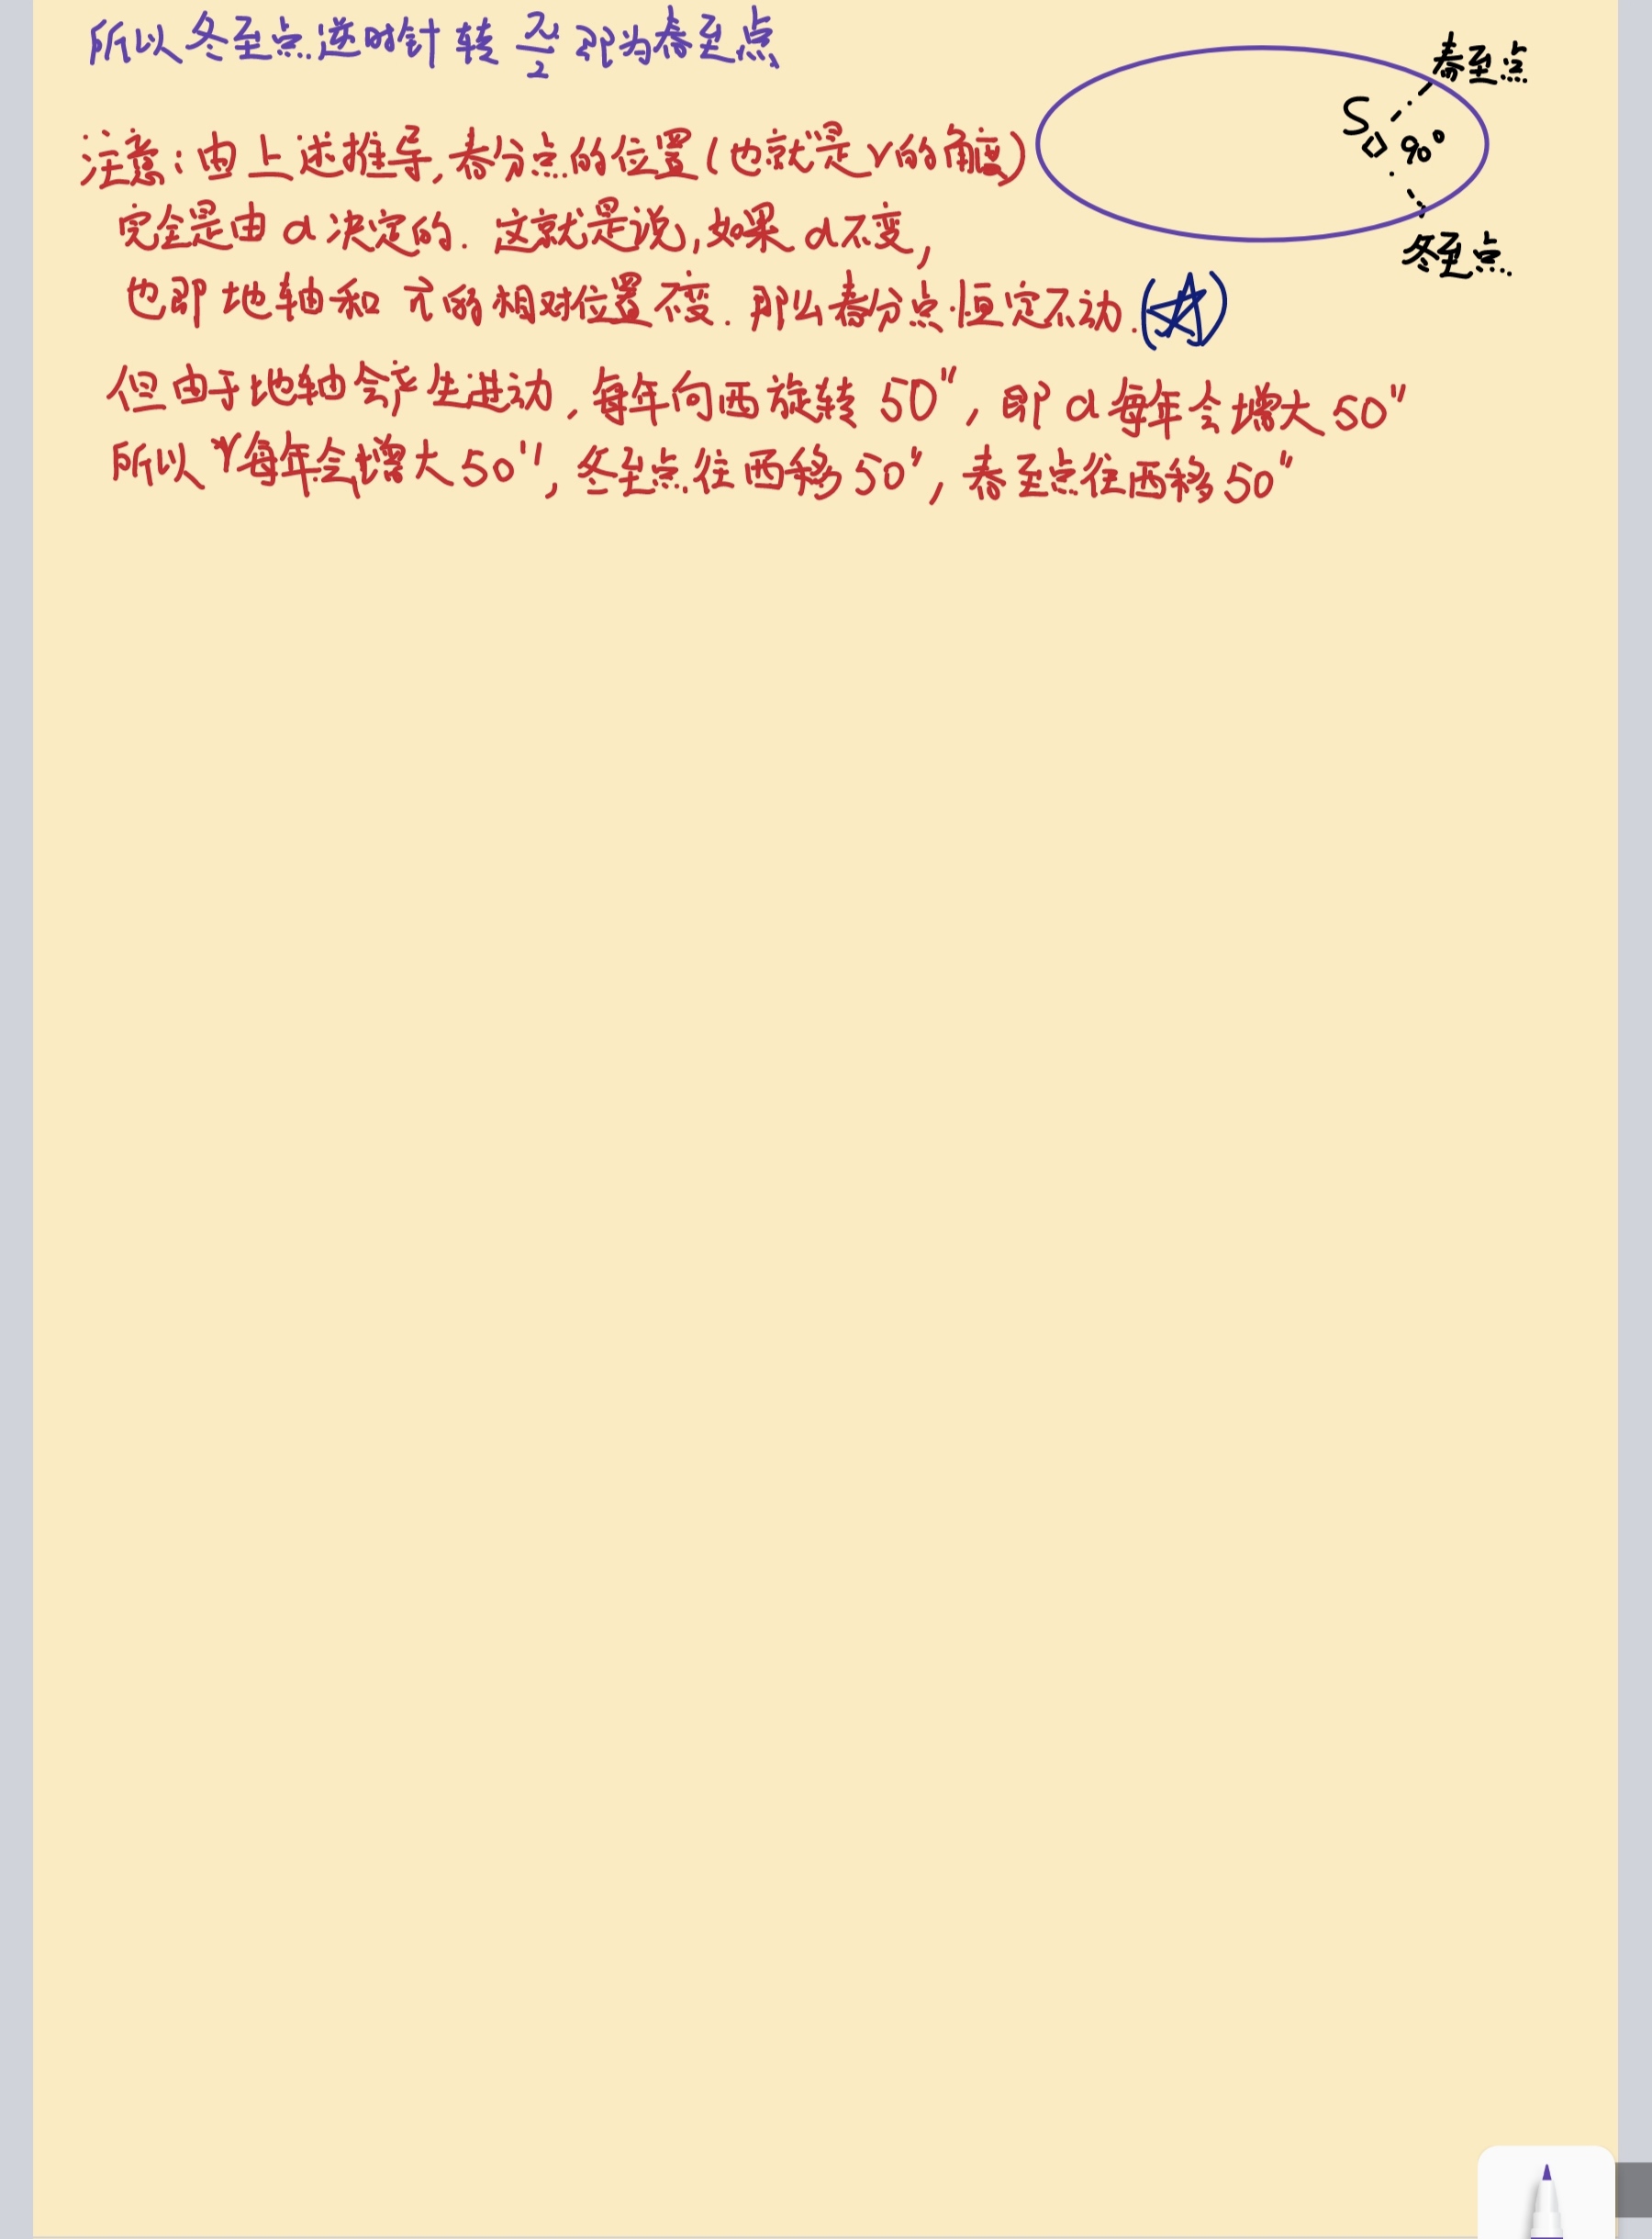 所以冬至点逆时针转 π/2 即为春至点
春至点
S
90°
冬至点
注意:由上述推导,春分点的位置(也就是γ的角度)
完全是由α决定的.这就是说,如果α不变,
也即地轴和 的相对位置不变.那么春分点恒定不动.(☆)
但由于地轴会产生进动,每年向西旋转50",即α每年会增大50"
所以γ每年会增大50",冬至点往西移50",春至点往西移50"